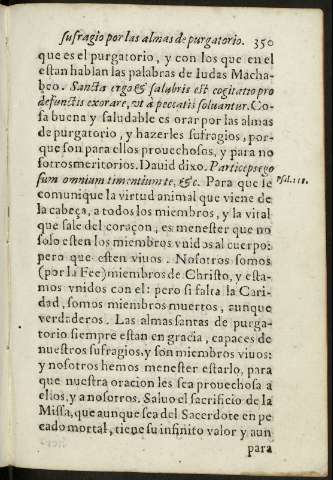 sufragio por las almas de purgatorio. 350
que es el purgatorio, y con los que en el
estan hablan las palabras de Iudas Macha-
beo. Sancta ergo & salubris est cogitatio pro
defunctis exorare, vt à peccatis soluantur. Co-
sa buena y saludable es orar por las almas
de purgatorio, y hazerles sufragios, por-
que son para ellos prouechosos, y para no
sotros meritorios. Dauid dixo. Particeps ego
sum omnium timentium te, &c. Para que se
Psal. 118.
comunique la virtud animal que viene de
la cabeça, a todos los miembros, y la vital
que sale del coraçon, es menester que no
solo esten los miembros vnidos al cuerpo:
pero que esten viuos. Nosotros somos
(por la Fee) miembros de Christo, y esta-
mos vnidos con el: pero si falta la Cari-
dad, somos miembros muertos, aunque
verdaderos. Las almas santas de purga-
torio siempre estan en gracia, capaces de
nuestros sufragios, y son miembros viuos:
y nosotros hemos menester estarlo, para
que nuestra oracion les sea prouechosa a
ellos, y a nosotros. Saluo el sacrificio de la
Missa, que aunque sea del Sacerdote en pe
cado mortal, tiene su infinito valor y aun
para